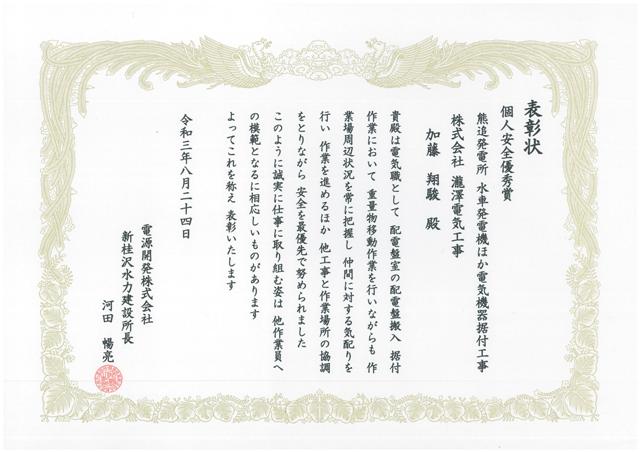 表彰状
個人安全優秀賞
熊追発電所 水車発電機ほか電気機器据付工事
株式会社 瀧澤電気工事
加藤 翔駿 殿
貴殿は電気職として 配電盤室の配電盤搬入 据付
作業において 重量物移動作業を行いながらも 作
業場周辺状況を常に把握し 仲間に対する気配りを
行い 作業を進めるほか 他工事と作業場所の協調
をとりながら 安全を最優先で努められました
このように誠実に仕事に取り組む姿は 他作業員へ
の模範となるに相応しいものがあります
よってこれを称え 表彰いたします
令和三年八月二十四日
電源開発株式会社
新桂沢水力建設所長
河田 暢亮